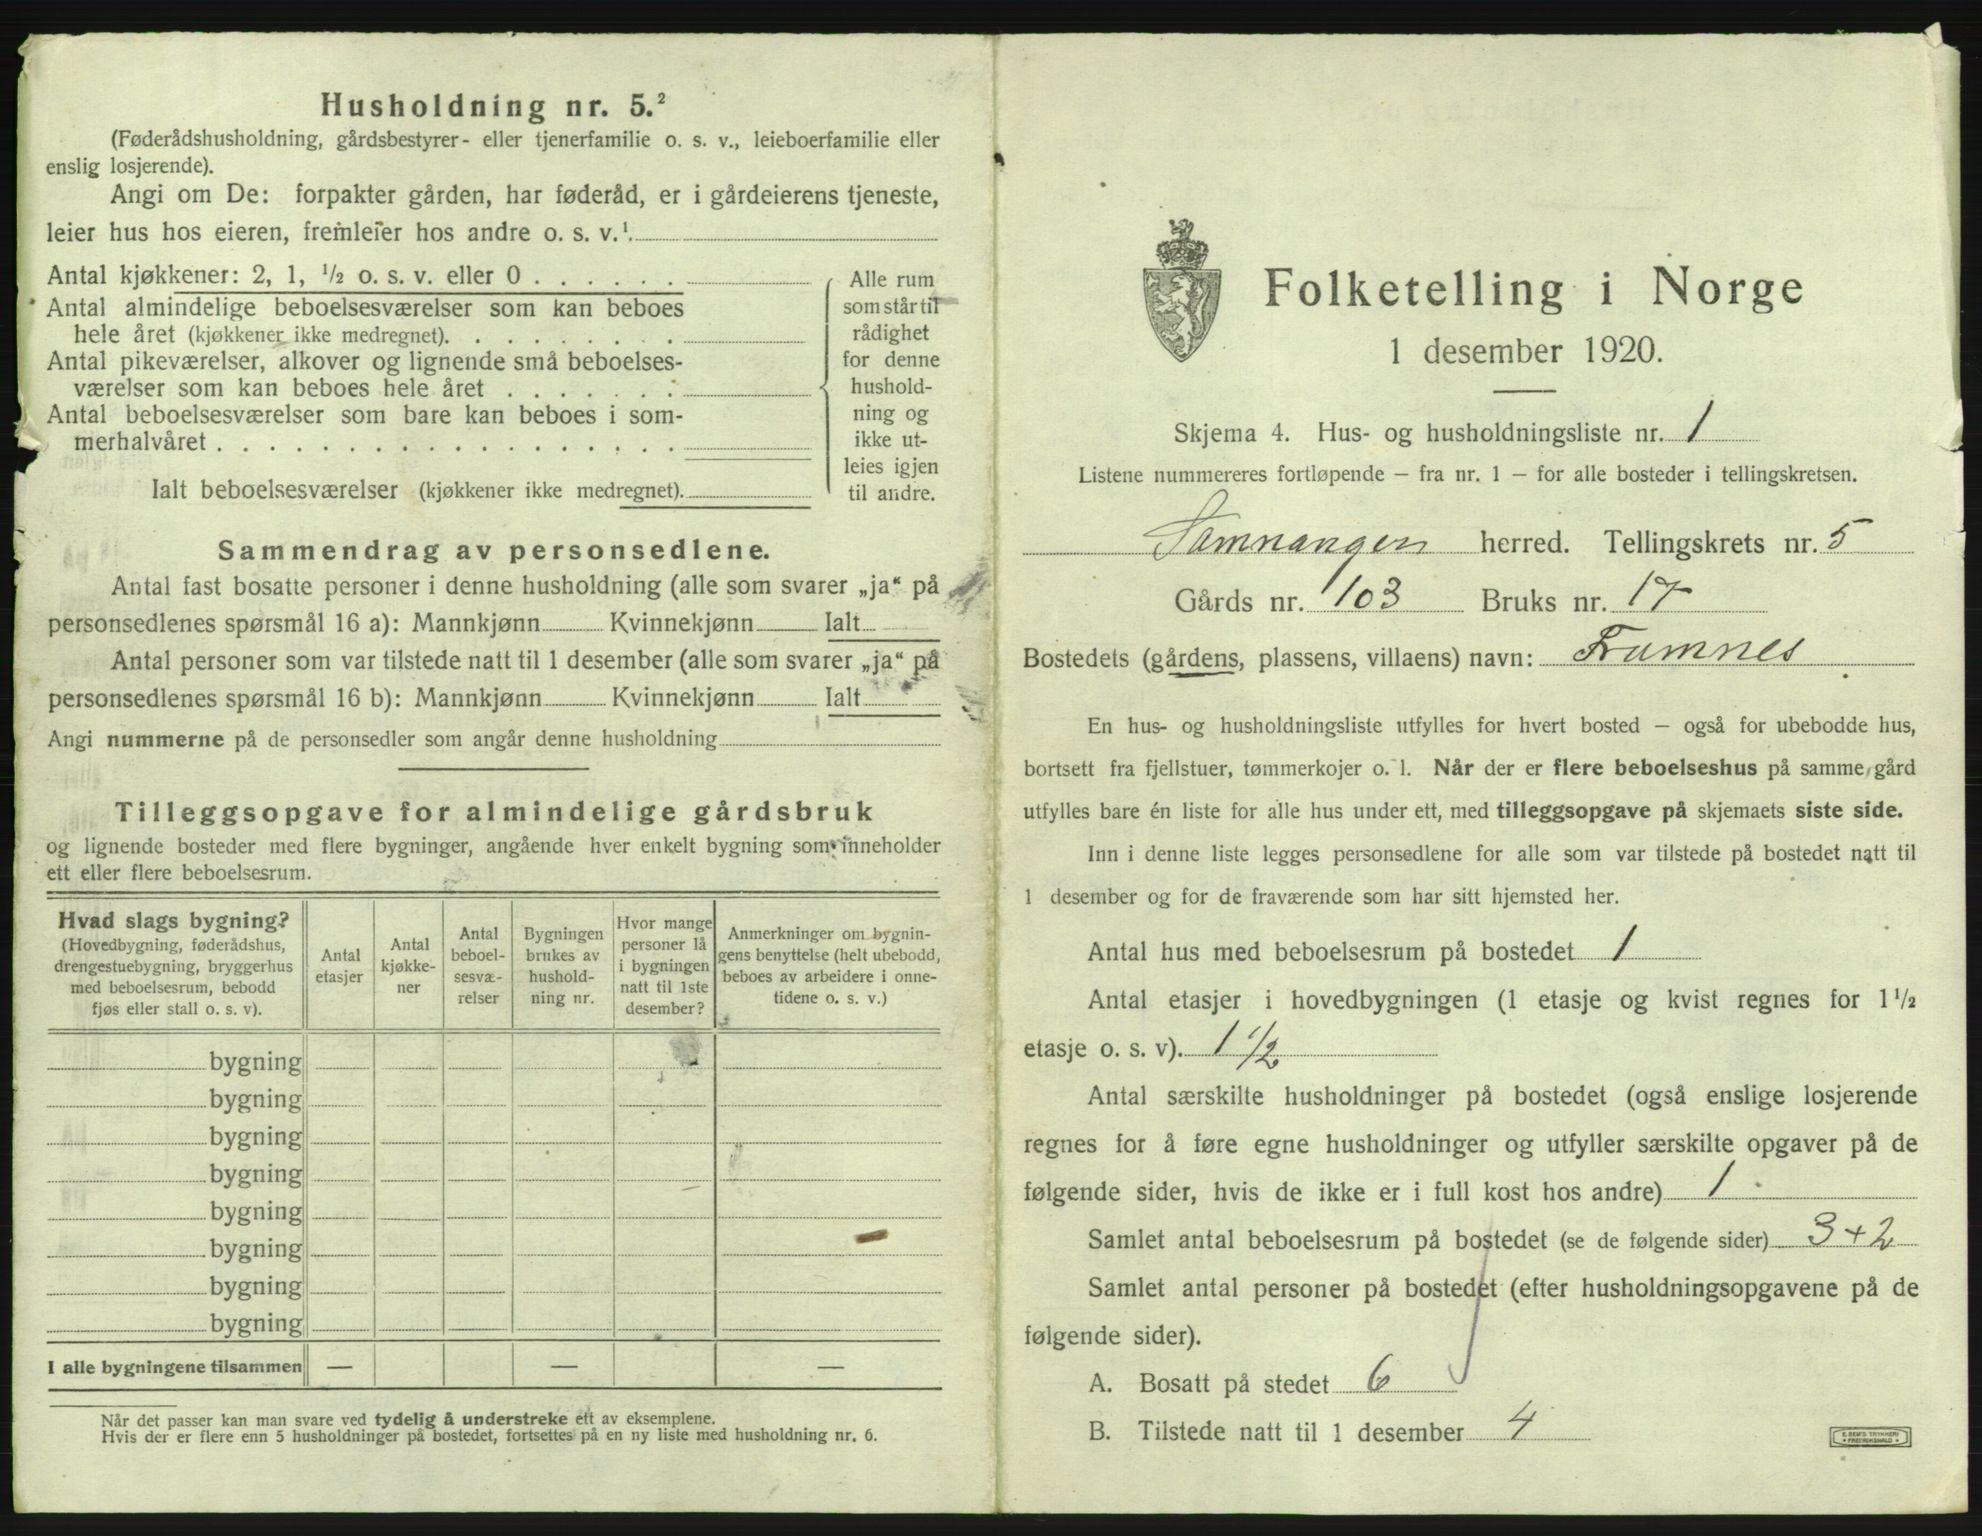 Husholdning nr. 5.²
(Føderådshusholdning, gårdsbestyrer- eller tjenerfamilie o. s. v., leieboerfamilie eller
enslig losjerende).
Angi om De: forpakter gården, har føderåd, er i gårdeierens tjeneste,
leier hus hos eieren, fremleier hos andre o. s. v.¹.
Antal kjøkkener: 2, 1, ½ o. s. v. eller 0 . . . . . .
Antal almindelige beboelsesværelser som kan beboes
hele året (kjøkkener ikke medregnet). . . . . . . . .
Antal pikeværelser, alkover og lignende små beboelses-
værelser som kan beboes hele året . . . . . . .
Antal beboelsesværelser som bare kan beboes i som-
merhalvåret . . . . . . . . . . . . . . . . . .
Ialt beboelsesværelser (kjøkkener ikke medregnet).
Alle rum
som står til
rådighet
for denne
hushold-
ning og
ikke ut-
leies igjen
til andre.
Sammendrag av personsedlene.
Antal fast bosatte personer i denne husholdning (alle som svarer „ja“ på
personsedlenes spørsmål 16 a): Mannkjønn Kvinnekjønn Ialt
Antal personer som var tilstede natt til 1 desember (alle som svarer „ja“ på
personsedlenes spørsmål 16 b): Mannkjønn Kvinnekjønn Ialt
Angi nummerne på de personsedler som angår denne husholdning
Tilleggsopgave for almindelige gårdsbruk
og lignende bosteder med flere bygninger, angående hver enkelt bygning som inneholder
ett eller flere beboelsesrum.
Hvad slags bygning?
(Hovedbygning, føderådshus,
drengestuebygning, bryggerhus
med beboelsesrum, bebodd
fjøs eller stall o. s. v).
Antal
etasjer
Antal
kjøkke-
ner
Antal
beboel-
sesvæ-
relser
Bygningen
brukes av
hushold-
ning nr.
Hvor mange
personer lå
i bygningen
natt til 1ste
desember?
Anmerkninger om bygnin-
gens benyttelse (helt ubebodd,
beboes av arbeidere i onne-
tidene o. s. v.)
bygning
bygning
bygning
bygning
bygning
bygning
bygning
bygning
I alle bygningene tilsammen — — —
Når det passer kan man svare ved tydelig å understreke ett av eksemplene.
Hvis der er flere enn 5 husholdninger på bostedet, fortsettes på en ny liste med husholdning nr. 6.
Folketelling i Norge
1 desember 1920.
Skjema 4. Hus- og husholdningsliste nr. 1
Listene nummereres fortløpende – fra nr. 1 – for alle bosteder i tellingskretsen.
Samnangen herred. Tellingskrets nr. 5
Gårds nr. 103 Bruks nr. 17
Bostedets (gårdens, plassens, villaens) navn: Framnes
En hus- og husholdningsliste utfylles for hvert bosted – også for ubebodde hus,
bortsett fra fjellstuer, tømmerkojer o. l. Når der er flere beboelseshus på samme gård
utfylles bare én liste for alle hus under ett, med tilleggsopgave på skjemaets siste side.
Inn i denne liste legges personsedlene for alle som var tilstede på bostedet natt til
1 desember og for de fraværende som har sitt hjemsted her.
Antal hus med beboelsesrum på bostedet 1
Antal etasjer i hovedbygningen (1 etasje og kvist regnes for 1½
etasje o. s. v). 1 ½
Antal særskilte husholdninger på bostedet (også enslige losjerende
regnes for å føre egne husholdninger og utfyller særskilte opgaver på de
følgende sider, hvis de ikke er i full kost hos andre) 1
Samlet antal beboelsesrum på bostedet (se de følgende sider) 3+2
Samlet antal personer på bostedet (efter husholdningsopgavene på de
følgende sider).
A. Bosatt på stedet 6
B. Tilstede natt til 1 desember 4